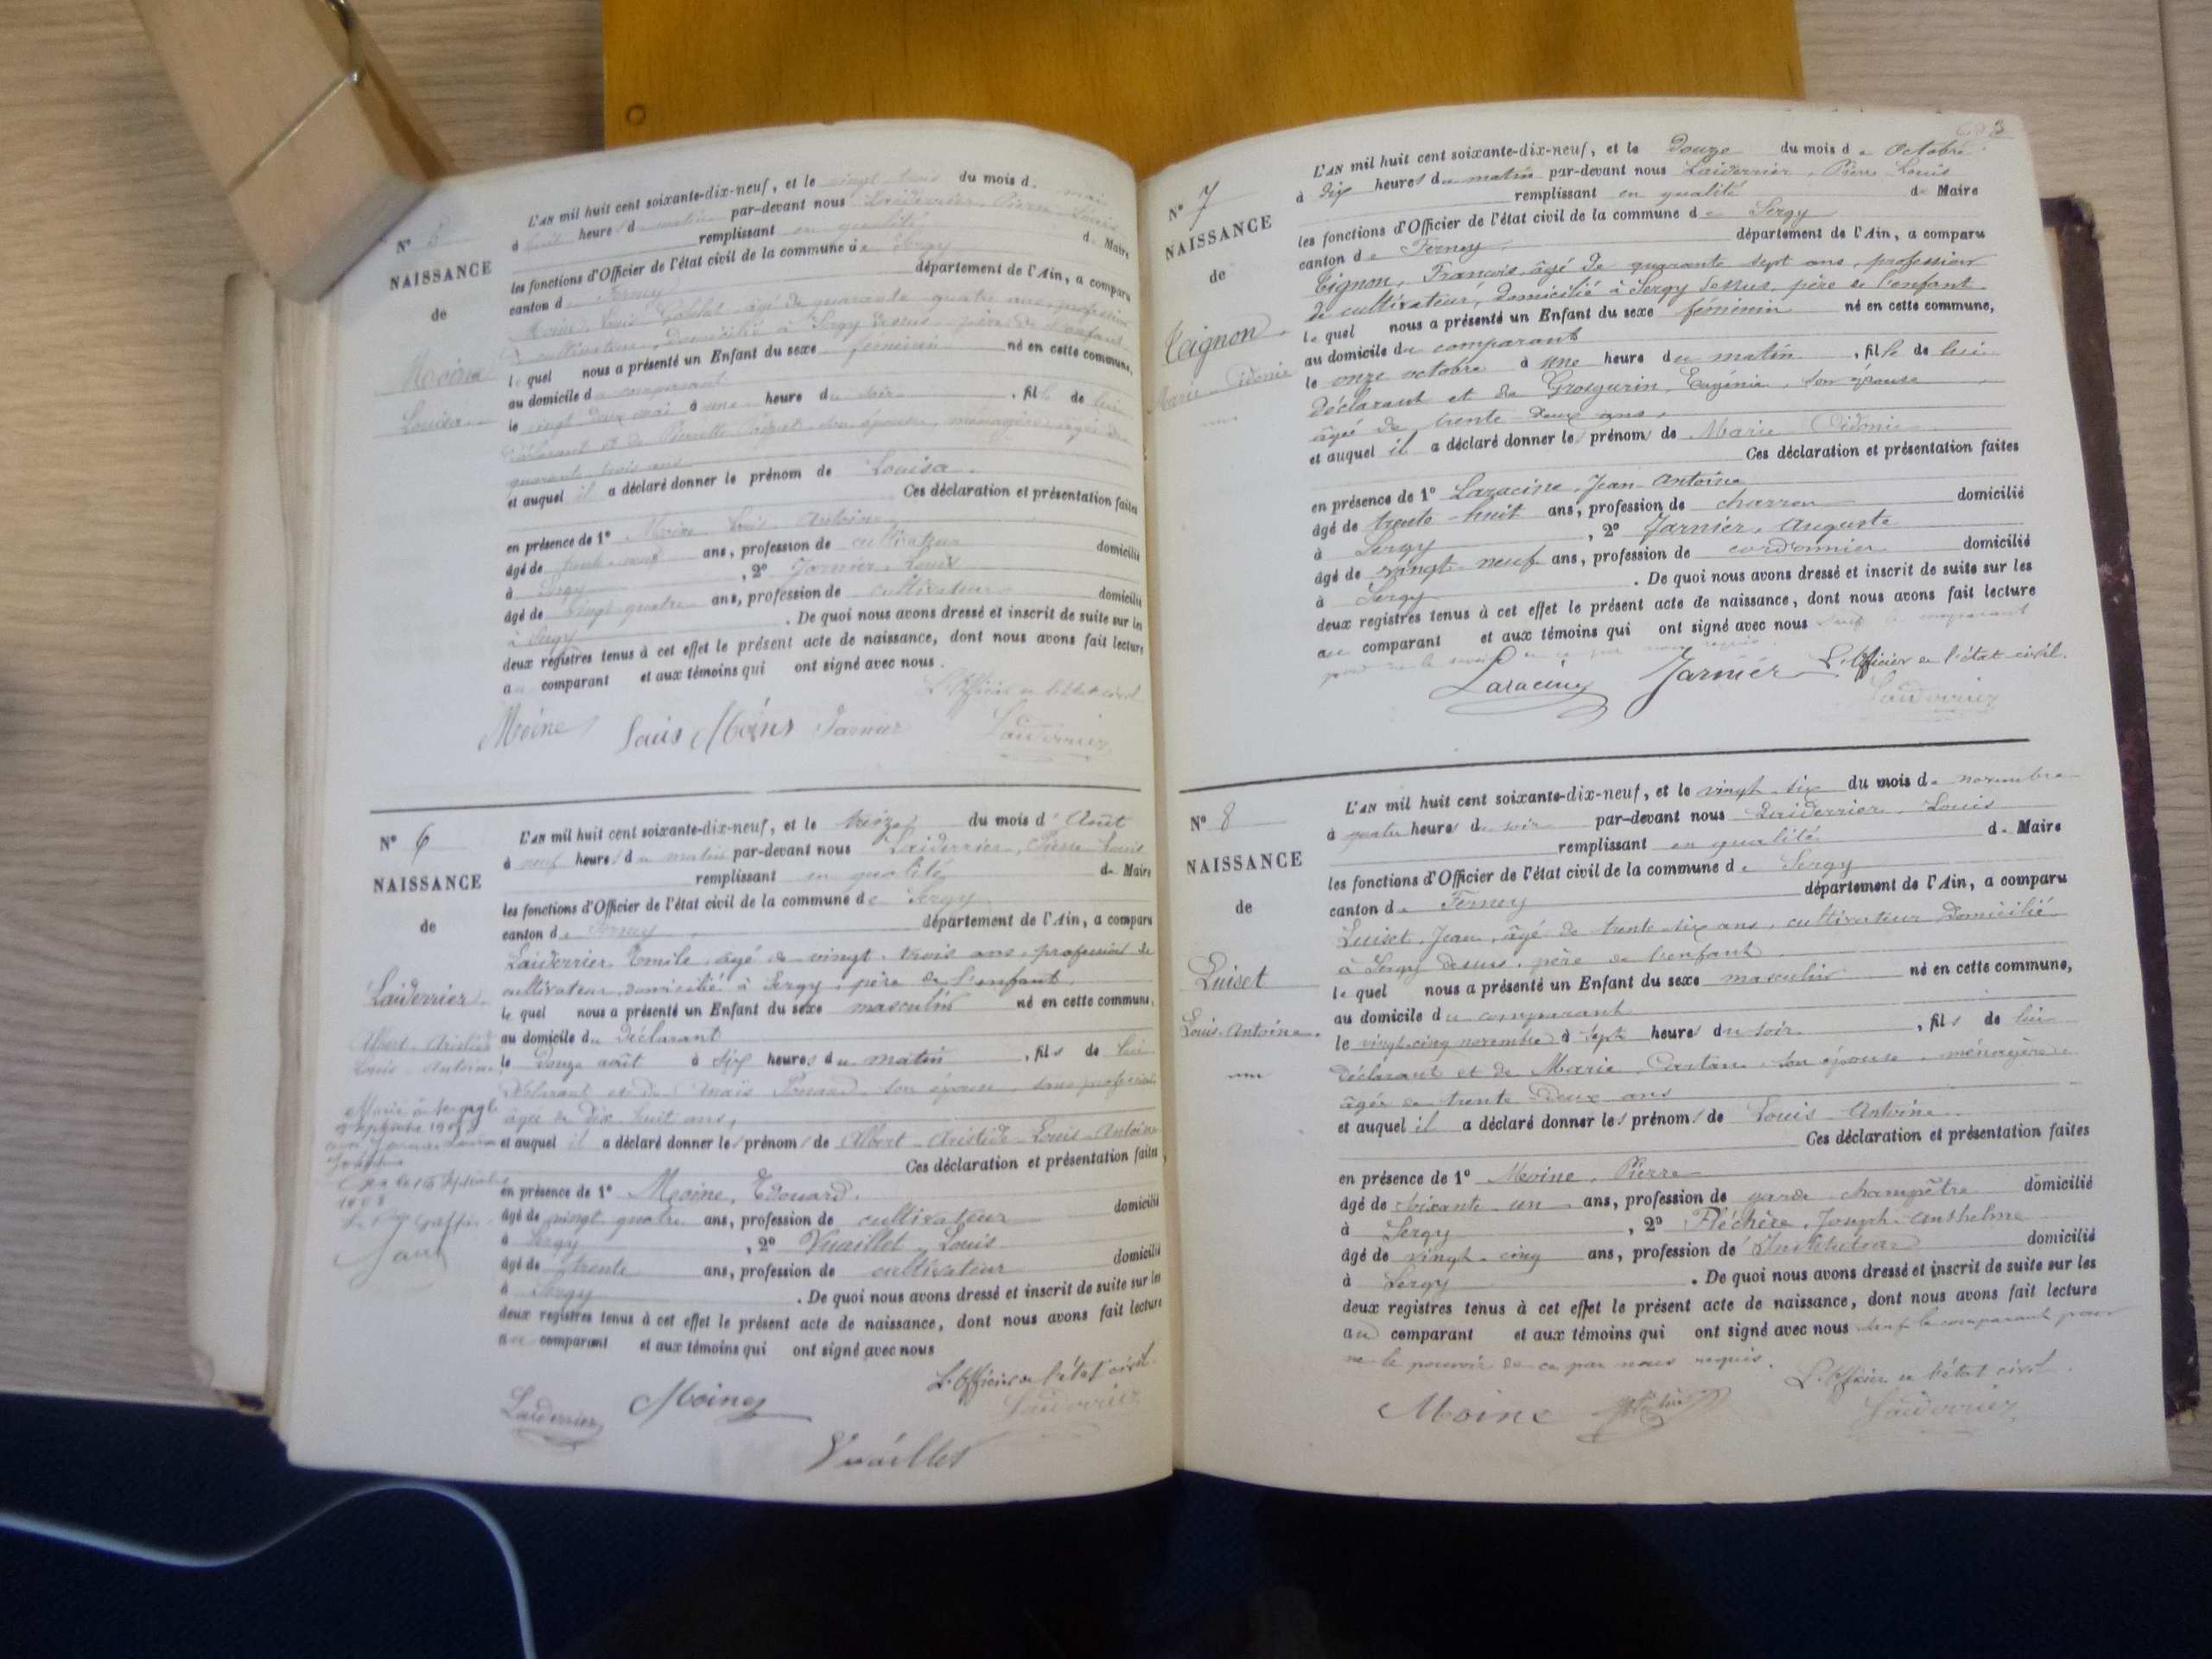 N° 5
NAISSANCE
de
Moine
Louisa
L'AN mil huit cent soixante-dix-neuf, et le vingt trois du mois d mai
à huit heures du matin par-devant nous Laiderrier, Pierre Louis
remplissant en qualité de Maire
les fonctions d'Officier de l'état civil de la commune de Sergy
canton de Ferney département de l'Ain, a comparu
Moine, Louis âgé de quarante quatre ans, profession
cultivateur, domicilié à Sergy dessus, père de l'enfant
lequel nous a présenté un Enfant du sexe féminin né en cette commune,
au domicile du comparant
le vingt deux mai à une heure du soir, fille de lui
déclarant et de son épouse, ménagère âgée de
quarante trois ans
et auquel il a déclaré donner le prénom de Louisa.
Ces déclaration et présentation faites
en présence de 1° Moine Louis Antoine
âgé de ans, profession de cultivateur domicilié
à Sergy, 2° Jarnier, Louis
âgé de vingt quatre ans, profession de cultivateur domicilié
à Sergy. De quoi nous avons dressé et inscrit de suite sur les
deux registres tenus à cet effet le présent acte de naissance, dont nous avons fait lecture
au comparant et aux témoins qui ont signé avec nous.
L'Officier de l'état civil
Moine Louis Moine Jarnier Laiderrier
N° 6
NAISSANCE
de
Laiderrier
Albert Aristide
Louis Antoine
L'AN mil huit cent soixante-dix-neuf, et le treize du mois d'Août
à neuf heures du matin par-devant nous Laiderrier, Pierre Louis
remplissant en qualité de Maire
les fonctions d'Officier de l'état civil de la commune de Sergy
canton de Ferney département de l'Ain, a comparu
Laiderrier Emile, âgé de vingt trois ans, profession de
cultivateur, domicilié à Sergy, père de l'enfant,
lequel nous a présenté un Enfant du sexe masculin né en cette commune,
au domicile du Déclarant
le Douze août à six heures du matin, fils de lui
Déclarant et de son épouse, sans profession
âgée de dix huit ans,
et auquel il a déclaré donner les prénoms de Albert Aristide Louis Antoine
Ces déclaration et présentation faites
en présence de 1° Moine, Edouard.
âgé de vingt quatre ans, profession de cultivateur domicilié
à Sergy, 2° Vuaillet Louis
âgé de trente ans, profession de cultivateur domicilié
à Sergy. De quoi nous avons dressé et inscrit de suite sur les
deux registres tenus à cet effet le présent acte de naissance, dont nous avons fait lecture
au comparant et aux témoins qui ont signé avec nous
L'Officier de l'état civil
Laiderrier Moine Laiderrier
Vuaillet
N° 7
NAISSANCE
de
Tignon
Marie Sidonie
L'AN mil huit cent soixante-dix-neuf, et le Douze du mois de Octobre
à dix heures du matin par-devant nous Laiderrier, Pierre Louis
remplissant en qualité de Maire
les fonctions d'Officier de l'état civil de la commune de Sergy
canton de Ferney département de l'Ain, a comparu
Tignon, François, âgé de quarante sept ans, profession
de cultivateur, domicilié à Sergy dessus, père de l'enfant
lequel nous a présenté un Enfant du sexe féminin né en cette commune,
au domicile du comparant
le onze octobre à une heure du matin, fille de lui
déclarant et de Grosgurin, Eugénie, son épouse
âgée de trente deux ans,
et auquel il a déclaré donner les prénoms de Marie Sidonie
Ces déclaration et présentation faites
en présence de 1° Laracine, Jean Antoine
âgé de trente-huit ans, profession de charron domicilié
à Sergy, 2° Jarnier, Auguste
âgé de vingt-neuf ans, profession de cordonnier domicilié
à Sergy. De quoi nous avons dressé et inscrit de suite sur les
deux registres tenus à cet effet le présent acte de naissance, dont nous avons fait lecture
au comparant et aux témoins qui ont signé avec nous sauf le comparant
Laracine Jarnier L'Officier de l'état civil.
Laiderrier
N° 8
NAISSANCE
de
Luiset
Louis Antoine.
L'AN mil huit cent soixante-dix-neuf, et le vingt six du mois de novembre
à quatre heures du soir par-devant nous Laiderrier, Louis
remplissant en qualité de Maire
les fonctions d'Officier de l'état civil de la commune de Sergy
canton de Ferney département de l'Ain, a comparu
Luiset, Jean, âgé de trente six ans, cultivateur domicilié
à Sergy dessus, père de l'enfant
lequel nous a présenté un Enfant du sexe masculin né en cette commune,
au domicile du comparant
le vingt cinq novembre à sept heures du soir, fils de lui
déclarant et de Marie Cartan son épouse, ménagère
âgée de trente deux ans
et auquel il a déclaré donner les prénoms de Louis Antoine
Ces déclaration et présentation faites
en présence de 1° Moine, Pierre
âgé de soixante un ans, profession de garde champêtre domicilié
à Sergy, 2° Fléchère, Joseph Anthelme
âgé de vingt-cinq ans, profession de Instituteur domicilié
à Sergy. De quoi nous avons dressé et inscrit de suite sur les
deux registres tenus à cet effet le présent acte de naissance, dont nous avons fait lecture
au comparant et aux témoins qui ont signé avec nous sauf le comparant pour
ne le pouvoir de ce par nous requis.
L'Officier de l'état civil
Moine Laiderrier